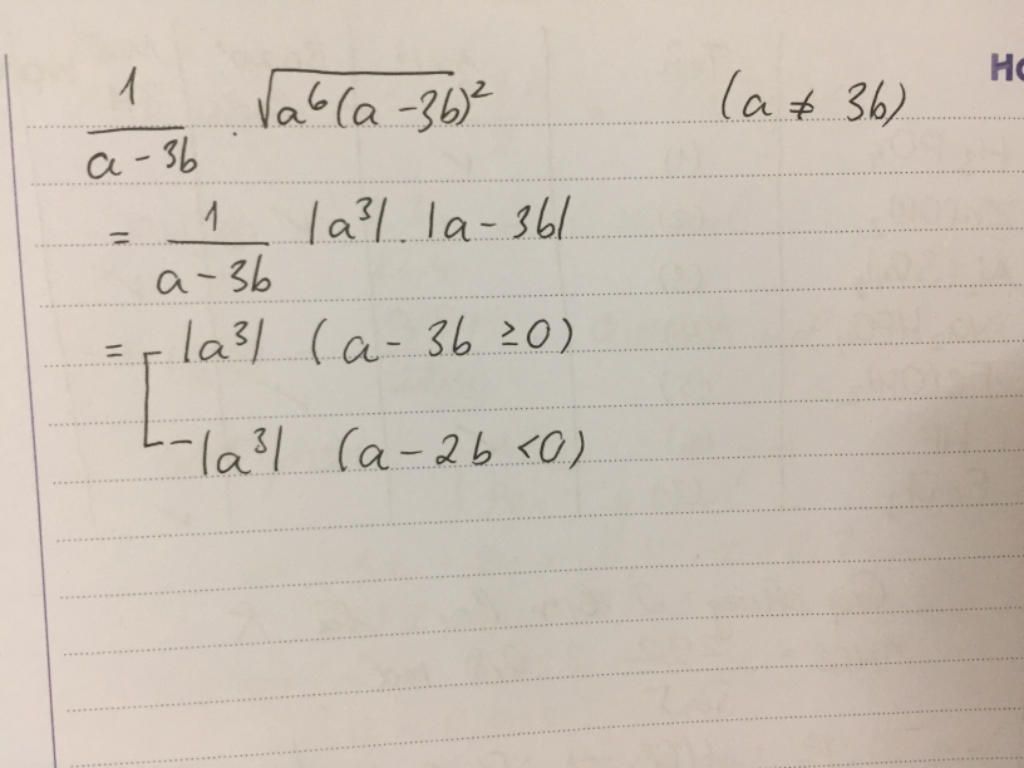 Ho
1/(a - 3b) . √(a⁶(a - 3b)²) (a ≠ 3b)
= 1/(a - 3b) |a³| . |a - 3b|
= |a³| (a - 3b ≥ 0)
-|a³| (a - 2b < 0)